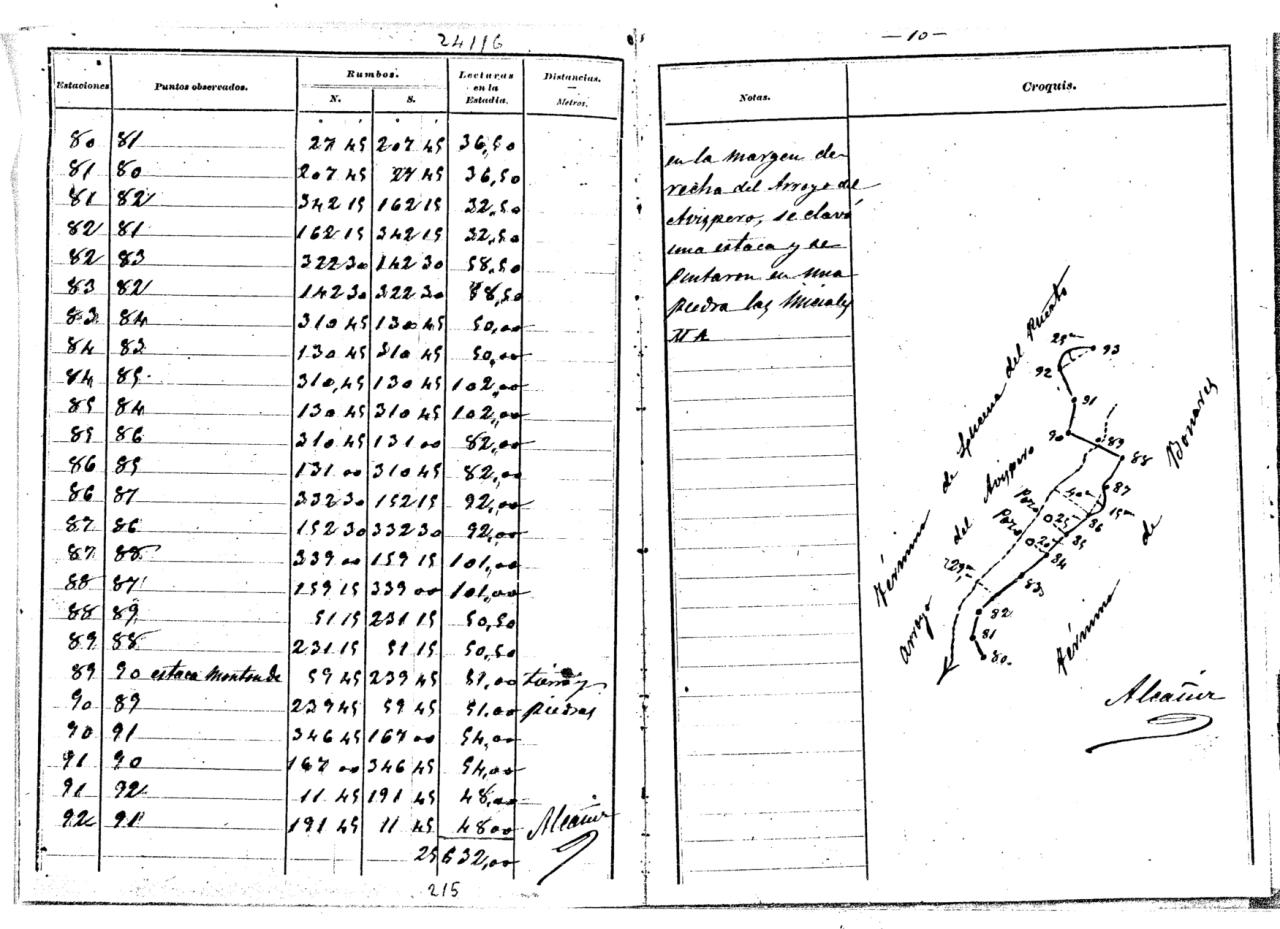 24116
Estaciones Puntos observados. Rumbos. N. S. Lecturas en la Estadia. Distancias. — Metros.
80 81 27 45 207 45 36,50
81 80 207 45 27 45 36,50
81 82 342 15 162 15 32,50
82 81 162 15 342 15 32,50
82 83 322 30 142 30 58,50
83 82 142 30 322 30 58,50
83 84 310 45 130 45 50,00
84 83 130 45 310 45 50,00
84 85 310,45 130 45 102,00
85 84 130 45 310 45 102,00
85 86 310 45 131 00 82,00
86 85 131 00 310 45 82,00
86 87 332 30 152 15 92,00
87 86 152 30 332 30 92,00
87 88 339 00 159 15 101,00
88 87 159 15 339 00 101,00
88 89 51 15 231 15 50,50
89 88 231 15 51 15 50,50
89 90 estaca monton de 59 45 239 45 51,00 tierra y
90 89 239 45 59 45 51.00 piedras
90 91 346 45 167 00 54,00
91 90 167 00 346 45 54,00
91 92 11 45 191 45 48,00
92 91 191 45 11 45 48 00 Alcañiz
25 632,00
215
—10—
Notas. Croquis.
en la margen de-
recha del Arroyo del
Avispero, se clavó
una estaca y se
pintaron en una
piedra las iniciales
M A
Término de Lucena del Puerto
arroyo del Avispero
Término de Bonares
25m
93
92
91
90
89
88
87
40m
15m
Pozo
25
86
Pozo
20
85
84
29m
83
82
81
80
Alcañiz